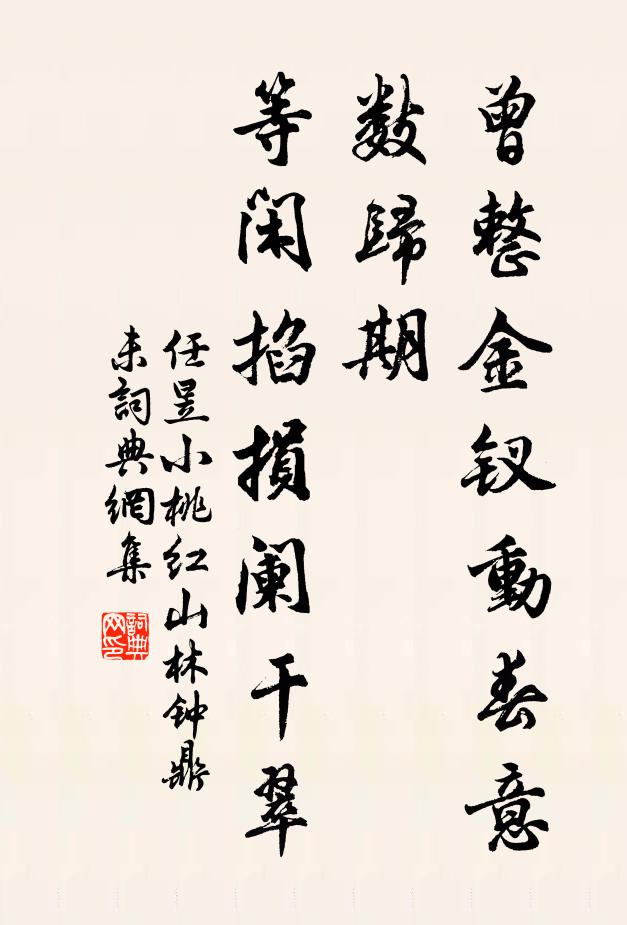 曾整金钗動春意
数歸期
等闲掐損阑干翠
任昱小桃红山林钟鼎
未詞典網集
詞典网印